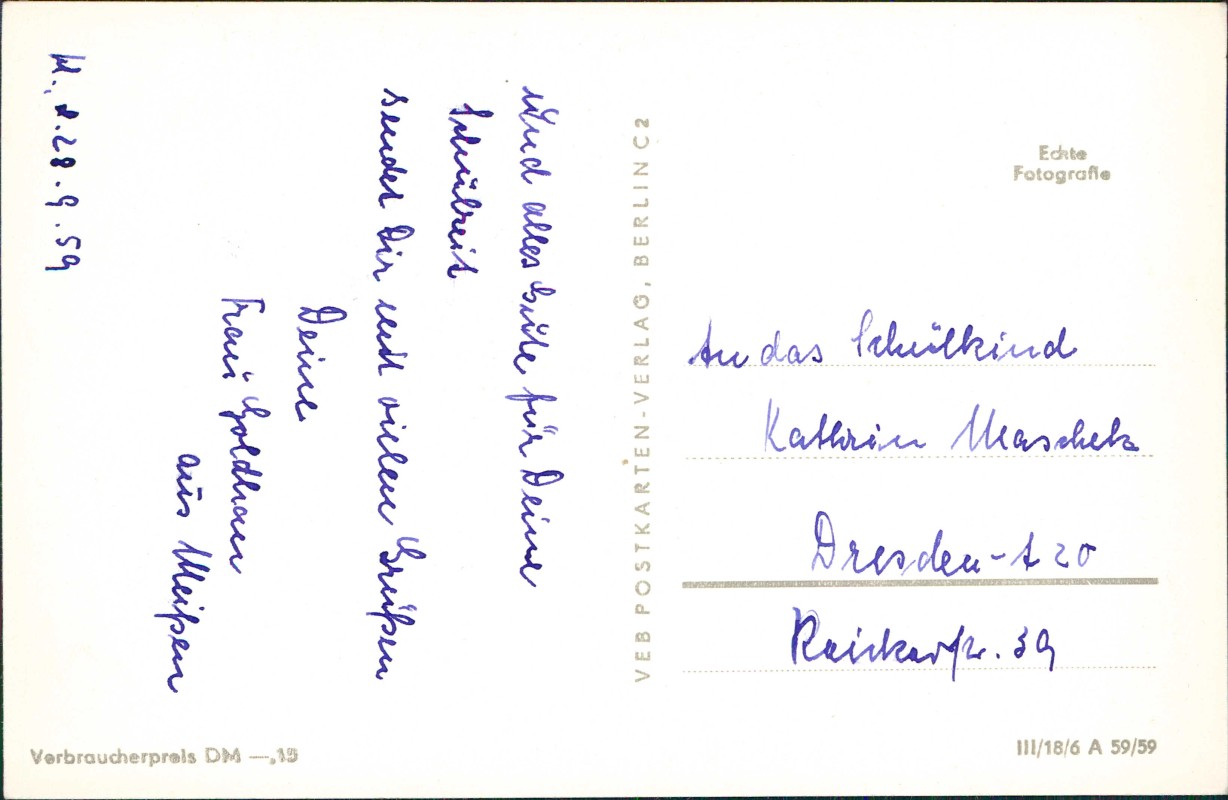 M., d. 28. 9. 59
Und alles Gute für Deine
Schulzeit
sendet Dir mit vielen Grüßen
Deine
Frau Goldhan
aus Meißen
VEB POSTKARTEN-VERLAG, BERLIN C2
Echte
Fotografie
An das Schulkind
Kathrin Maschek
Dresden-A 20
Reickerstr. 39
Verbraucherpreis DM —,15
III/18/6 A 59/59